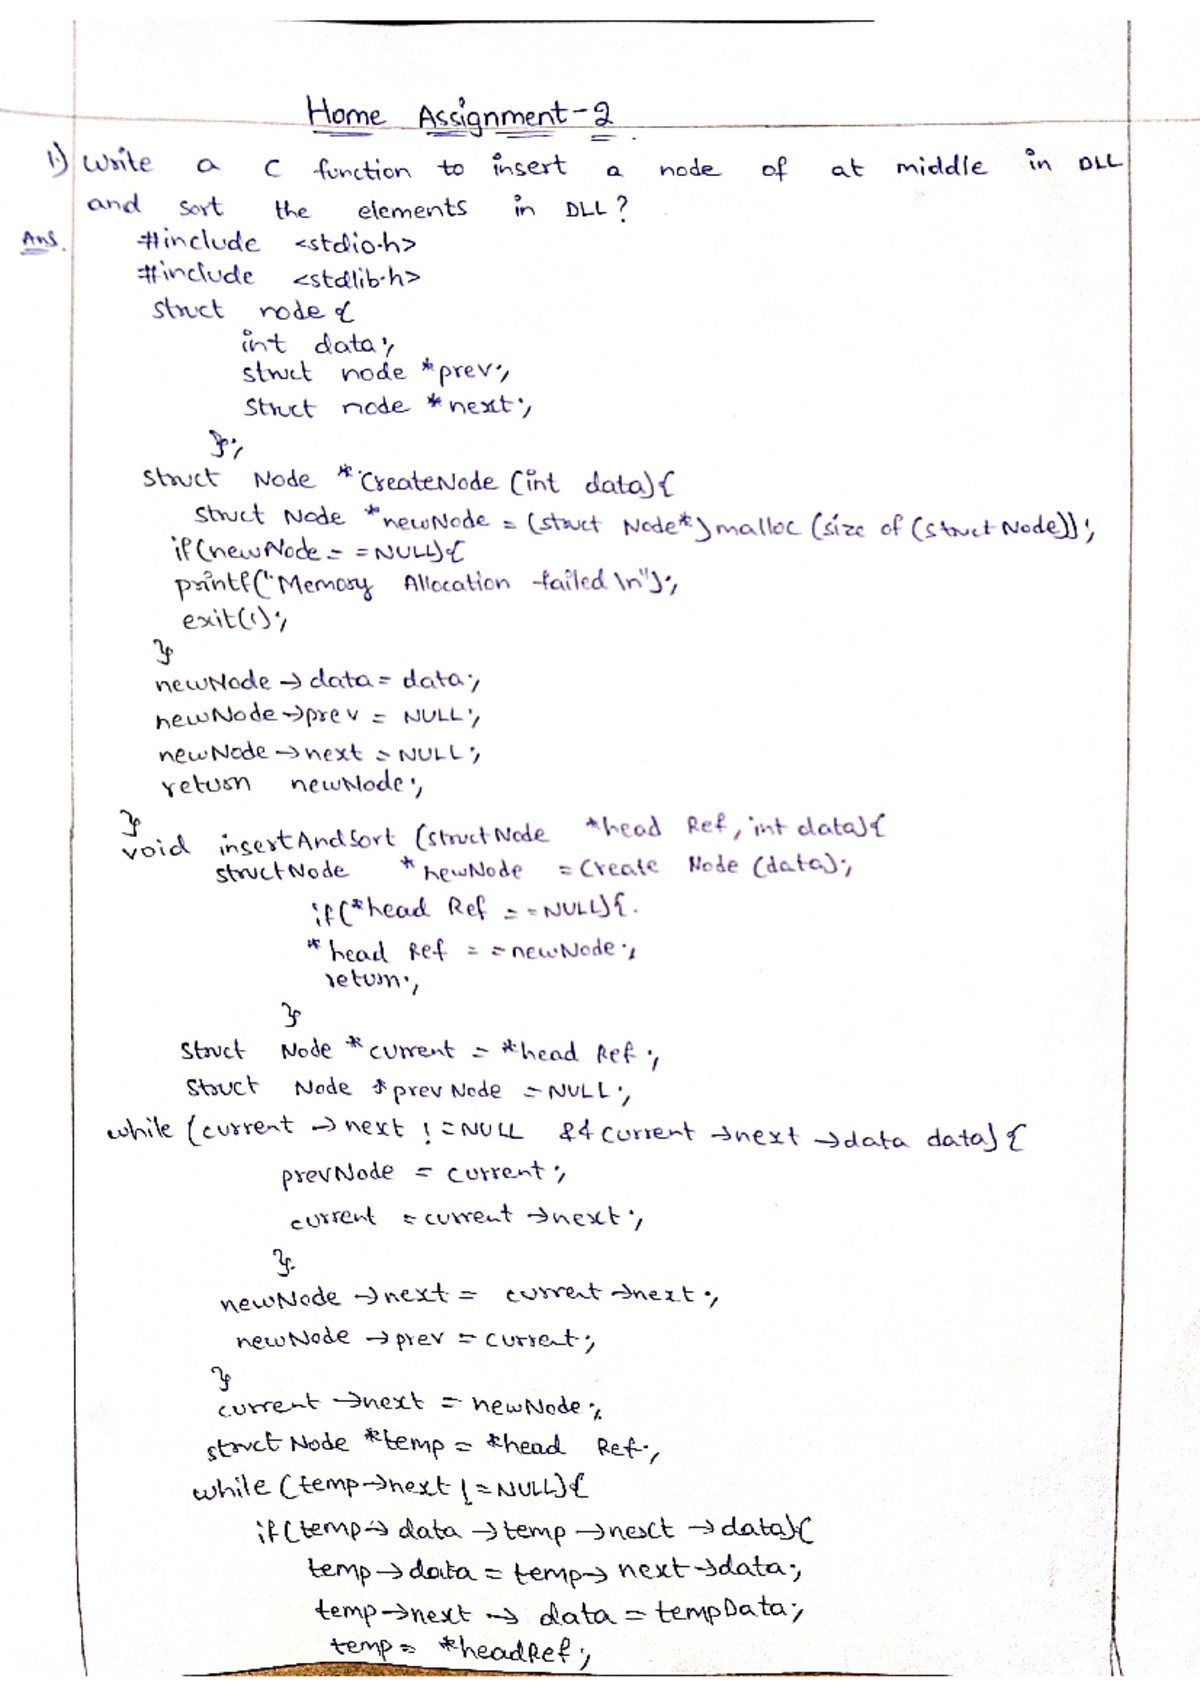 Home Assignment-2
1.) Write a C function to insert a node of at middle in DLL
and sort the elements in DLL?
Ans. #include <stdio.h>
#include <stdlib.h>
struct node {
int data;
struct node *prev;
struct node *next;
};
struct Node *CreateNode (int data){
struct Node *newNode = (struct Node*) malloc (size of (struct Node));
if (newNode = = NULL){
printf("Memory Allocation failed \n");
exit(1);
}
newNode → data = data;
newNode → prev = NULL;
newNode → next = NULL;
return newNode;
}
void insertAndSort (struct Node *head Ref, int data){
struct Node *newNode = Create Node (data);
if (*head Ref = = NULL){.
*head Ref = = newNode;
return;
}
Struct Node *current = *head Ref;
Struct Node *prev Node = NULL;
while (current → next != NULL && current → next → data data) {
prevNode = current;
current = current → next;
}.
newNode → next = current → next;
newNode → prev = current;
}
current → next = newNode;
struct Node *temp = *head Ref;
while (temp → next != NULL){
if (temp → data → temp → next → data){
temp → data = temp → next → data;
temp → next → data = tempData;
temp = *headRef;